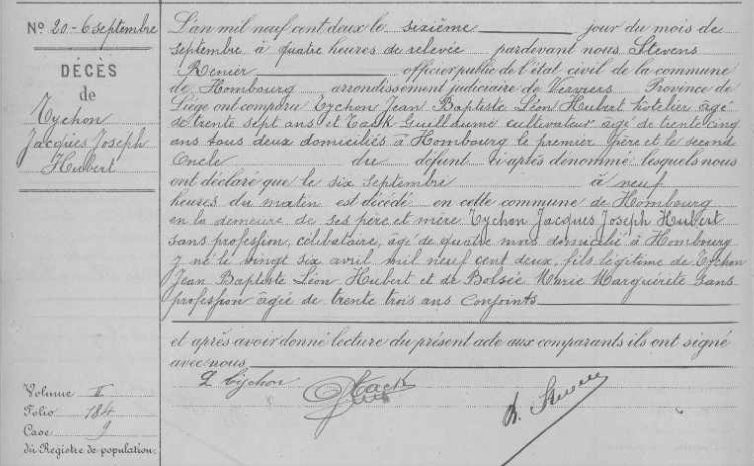 No. 20 - 6 septembre
DÉCÈS
de
Tychon
Jacques Joseph
Hubert
Volume II
Folio 184
Case 9
du Registre de population.
L'an mil neuf cent deux le sixième jour du mois de
septembre à quatre heures de relevée pardevant nous Stevens
Renier officier public de l'état civil de la commune
de Hombourg arrondissement judiciaire de Verviers Province de
Liège ont comparu Tychon Jean Baptiste Léon Hubert hotelier âgé
de trente sept ans et Tack Guilldaume cultivateur âgé de trente cinq
ans tous deux domiciliés à Hombourg le premier père et le second
Oncle du défunt ci après dénommé lesquels nous
ont déclaré que le six septembre à neuf
heures du matin est décédé en cette commune de Hombourg
en la demeure de ses père et mère Tychon Jacques Joseph Hubert
sans profession, célibataire, âgé de quatre mois domicilié à Hombourg
y né le vingt six avril mil neuf cent deux, fils légitime de Tychon
Jean Baptiste Léon Hubert et de Bolsée Marie Marguérite sans
profession âgée de trente trois ans conjoints
et après avoir donné lecture du présent acte aux comparants ils ont signé
avec nous
L Tychon
Tack
R. Stevens